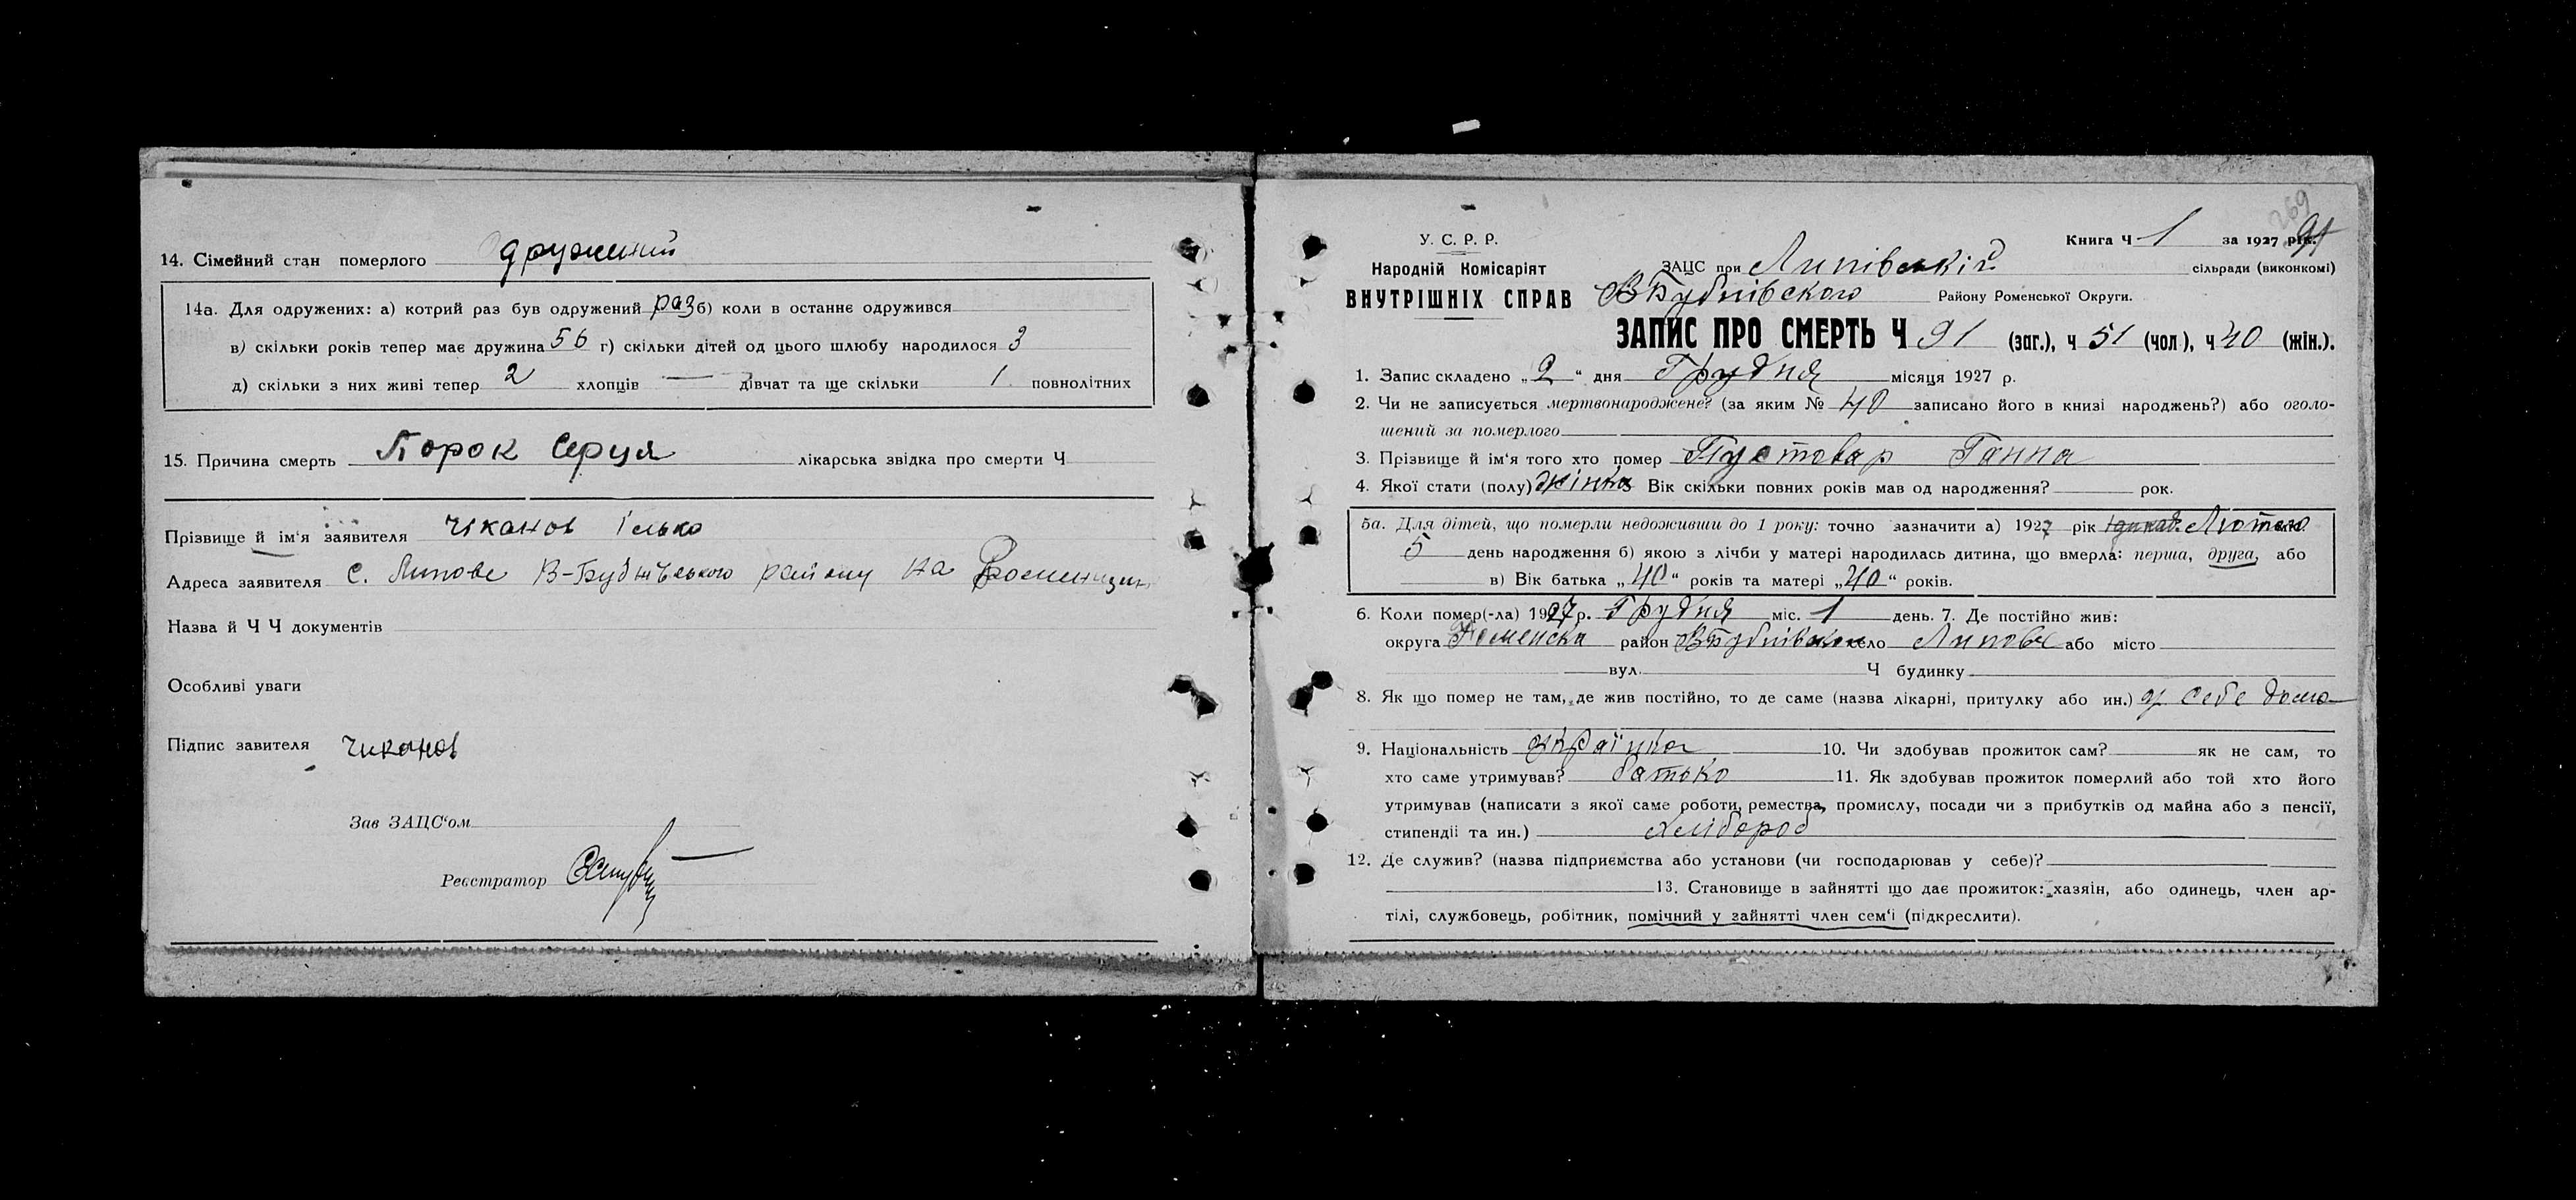 14. Сімейний стан померлого дружений
14а. Для одружених: а) котрий раз був одружений раз б) коли в останнє одружився
в) скільки років тепер має дружина 56 г) скільки дітей од цього шлюбу народилося 3
д) скільки з них живі тепер 2 хлопців — дівчат та ще скільки 1 повнолітних
15. Причина смерть Порок Серця лікарська звідка про смерти Ч
Прізвище й ім'я заявителя Чіканов Ілько
Адреса заявителя с. Липове В-Бубнівського району на Роменщині
Назва й Ч Ч документів
Особливі уваги
Підпис завителя Чиканов
Зав ЗАЦС'ом
Реєстратор
269
91
Книга Ч 1 за 1927 рік.
У. С. Р. Р.
Народній Комісаріят
ВНУТРІШНІХ СПРАВ
ЗАЦС при Липівській сільради (виконкомі)
В Бубнівского Району Роменської Округи.
ЗАПИС ПРО СМЕРТЬ Ч 91 (заг.), ч 51 (чол), ч 40 (жін.).
1. Запис складено „2“ дня Грудня місяця 1927 р.
2. Чи не записується мертвонароджене? (за яким № 40 записано його в книзі народжень?) або оголо-
шений за померлого
3. Прізвище й ім'я того хто помер Пустовар Ганна
4. Якої стати (полу) жінка Вік скільки повних років мав од народження? рок.
5а. Для дітей, що померли недоживши до 1 року: точно зазначити а) 1927 рік Лютого
5 день народження б) якою з лічби у матері народилась дитина, що вмерла: перша, друга, або
в) Вік батька „40“ років та матері „40“ років.
6. Коли помер(-ла) 1927 р. Грудня міс. 1 день. 7. Де постійно жив:
округа Роменська район В Бубнівськ село Липове або місто
вул. Ч будинку
8. Як що помер не там, де жив постійно, то де саме (назва лікарні, притулку або ин.) у себе дома
9. Національність українка 10. Чи здобував прожиток сам? як не сам, то
хто саме утримував? батько 11. Як здобував прожиток померлий або той хто його
утримував (написати з якої саме роботи, ремества, промислу, посади чи з прибутків од майна або з пенсії,
стипендіі та ин.) хлібороб
12. Де служив? (назва підприємства або установи (чи господарював у себе)?
13. Становище в зайнятті що дає прожиток: хазяін, або одинець, член ар-
тілі, службовець, робітник, помічний у зайнятті член сем'і (підкреслити).